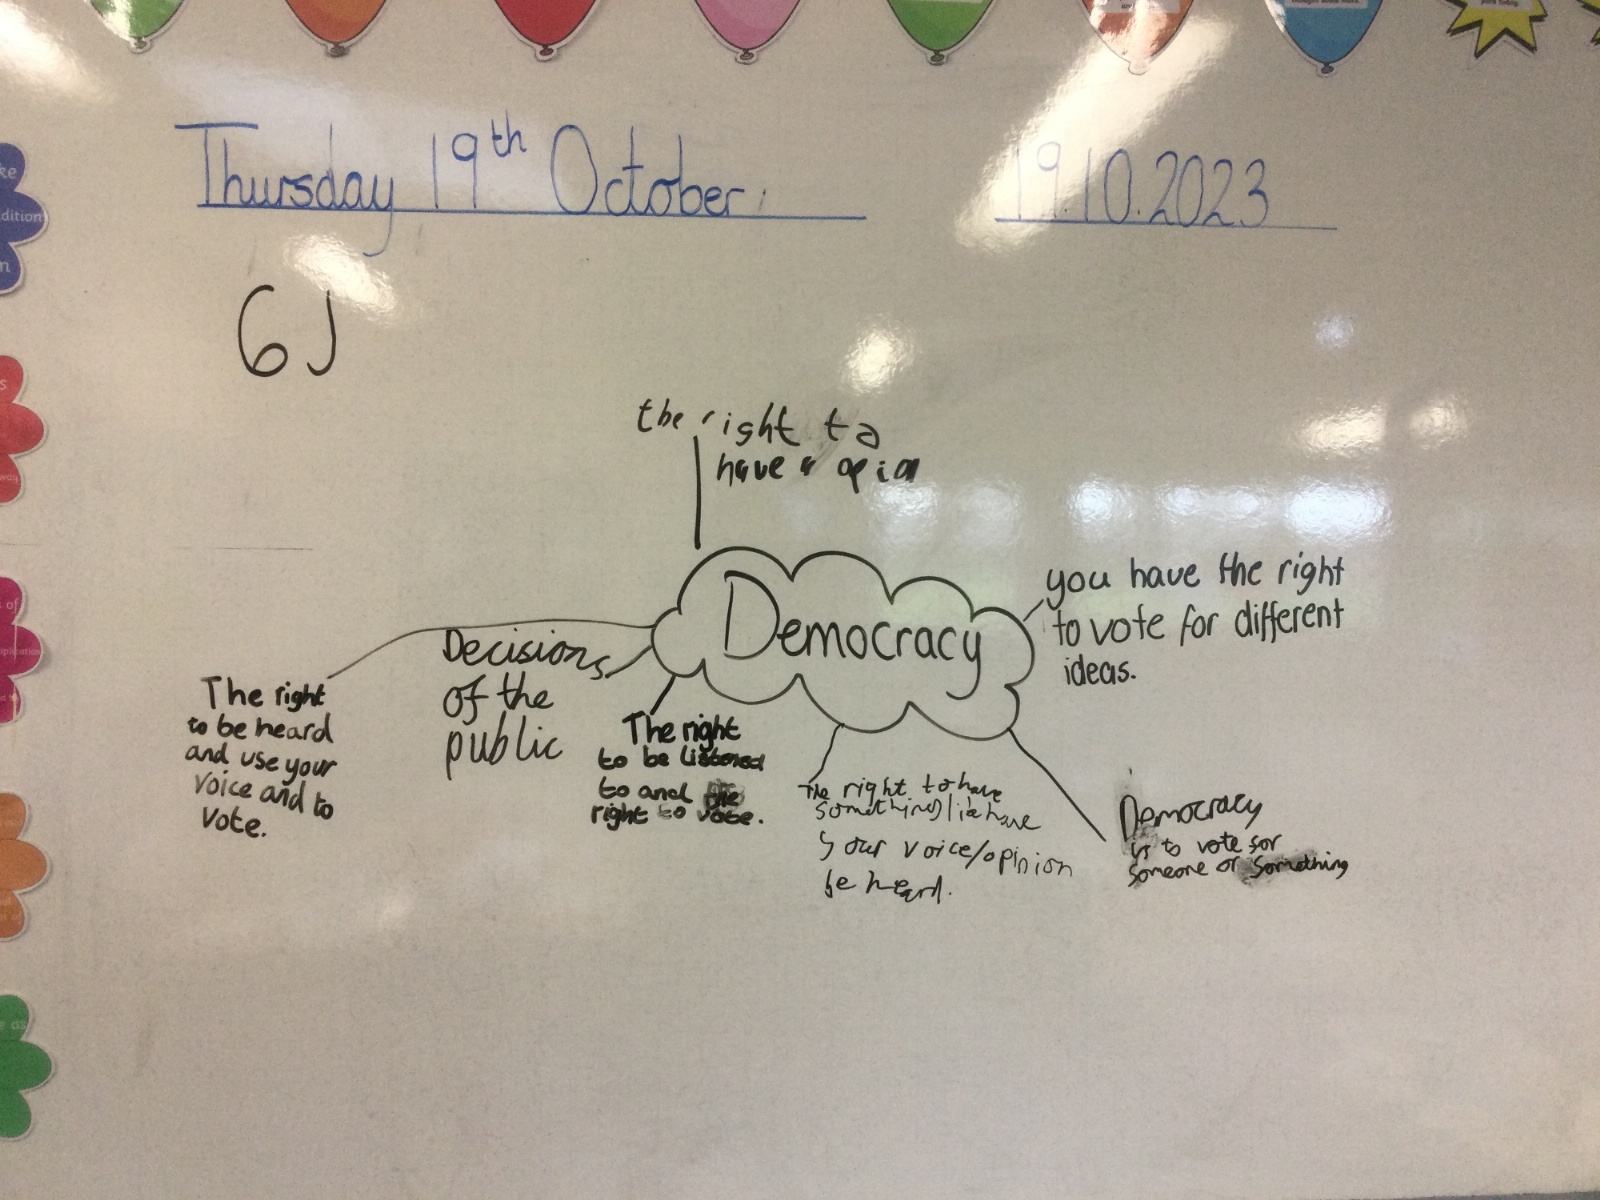 Thursday 19th October
19.10.2023
6J
the right to
have a opion
Democracy
you have the right
to vote for different
ideas.
Decisions
of the
public
The right
to be heard
and use your
voice and to
vote.
The right
to be listened
to and the
right to vote.
The right to have
something/ie have
your voice/opinion
be heard.
Democracy
is to vote for
someone or something